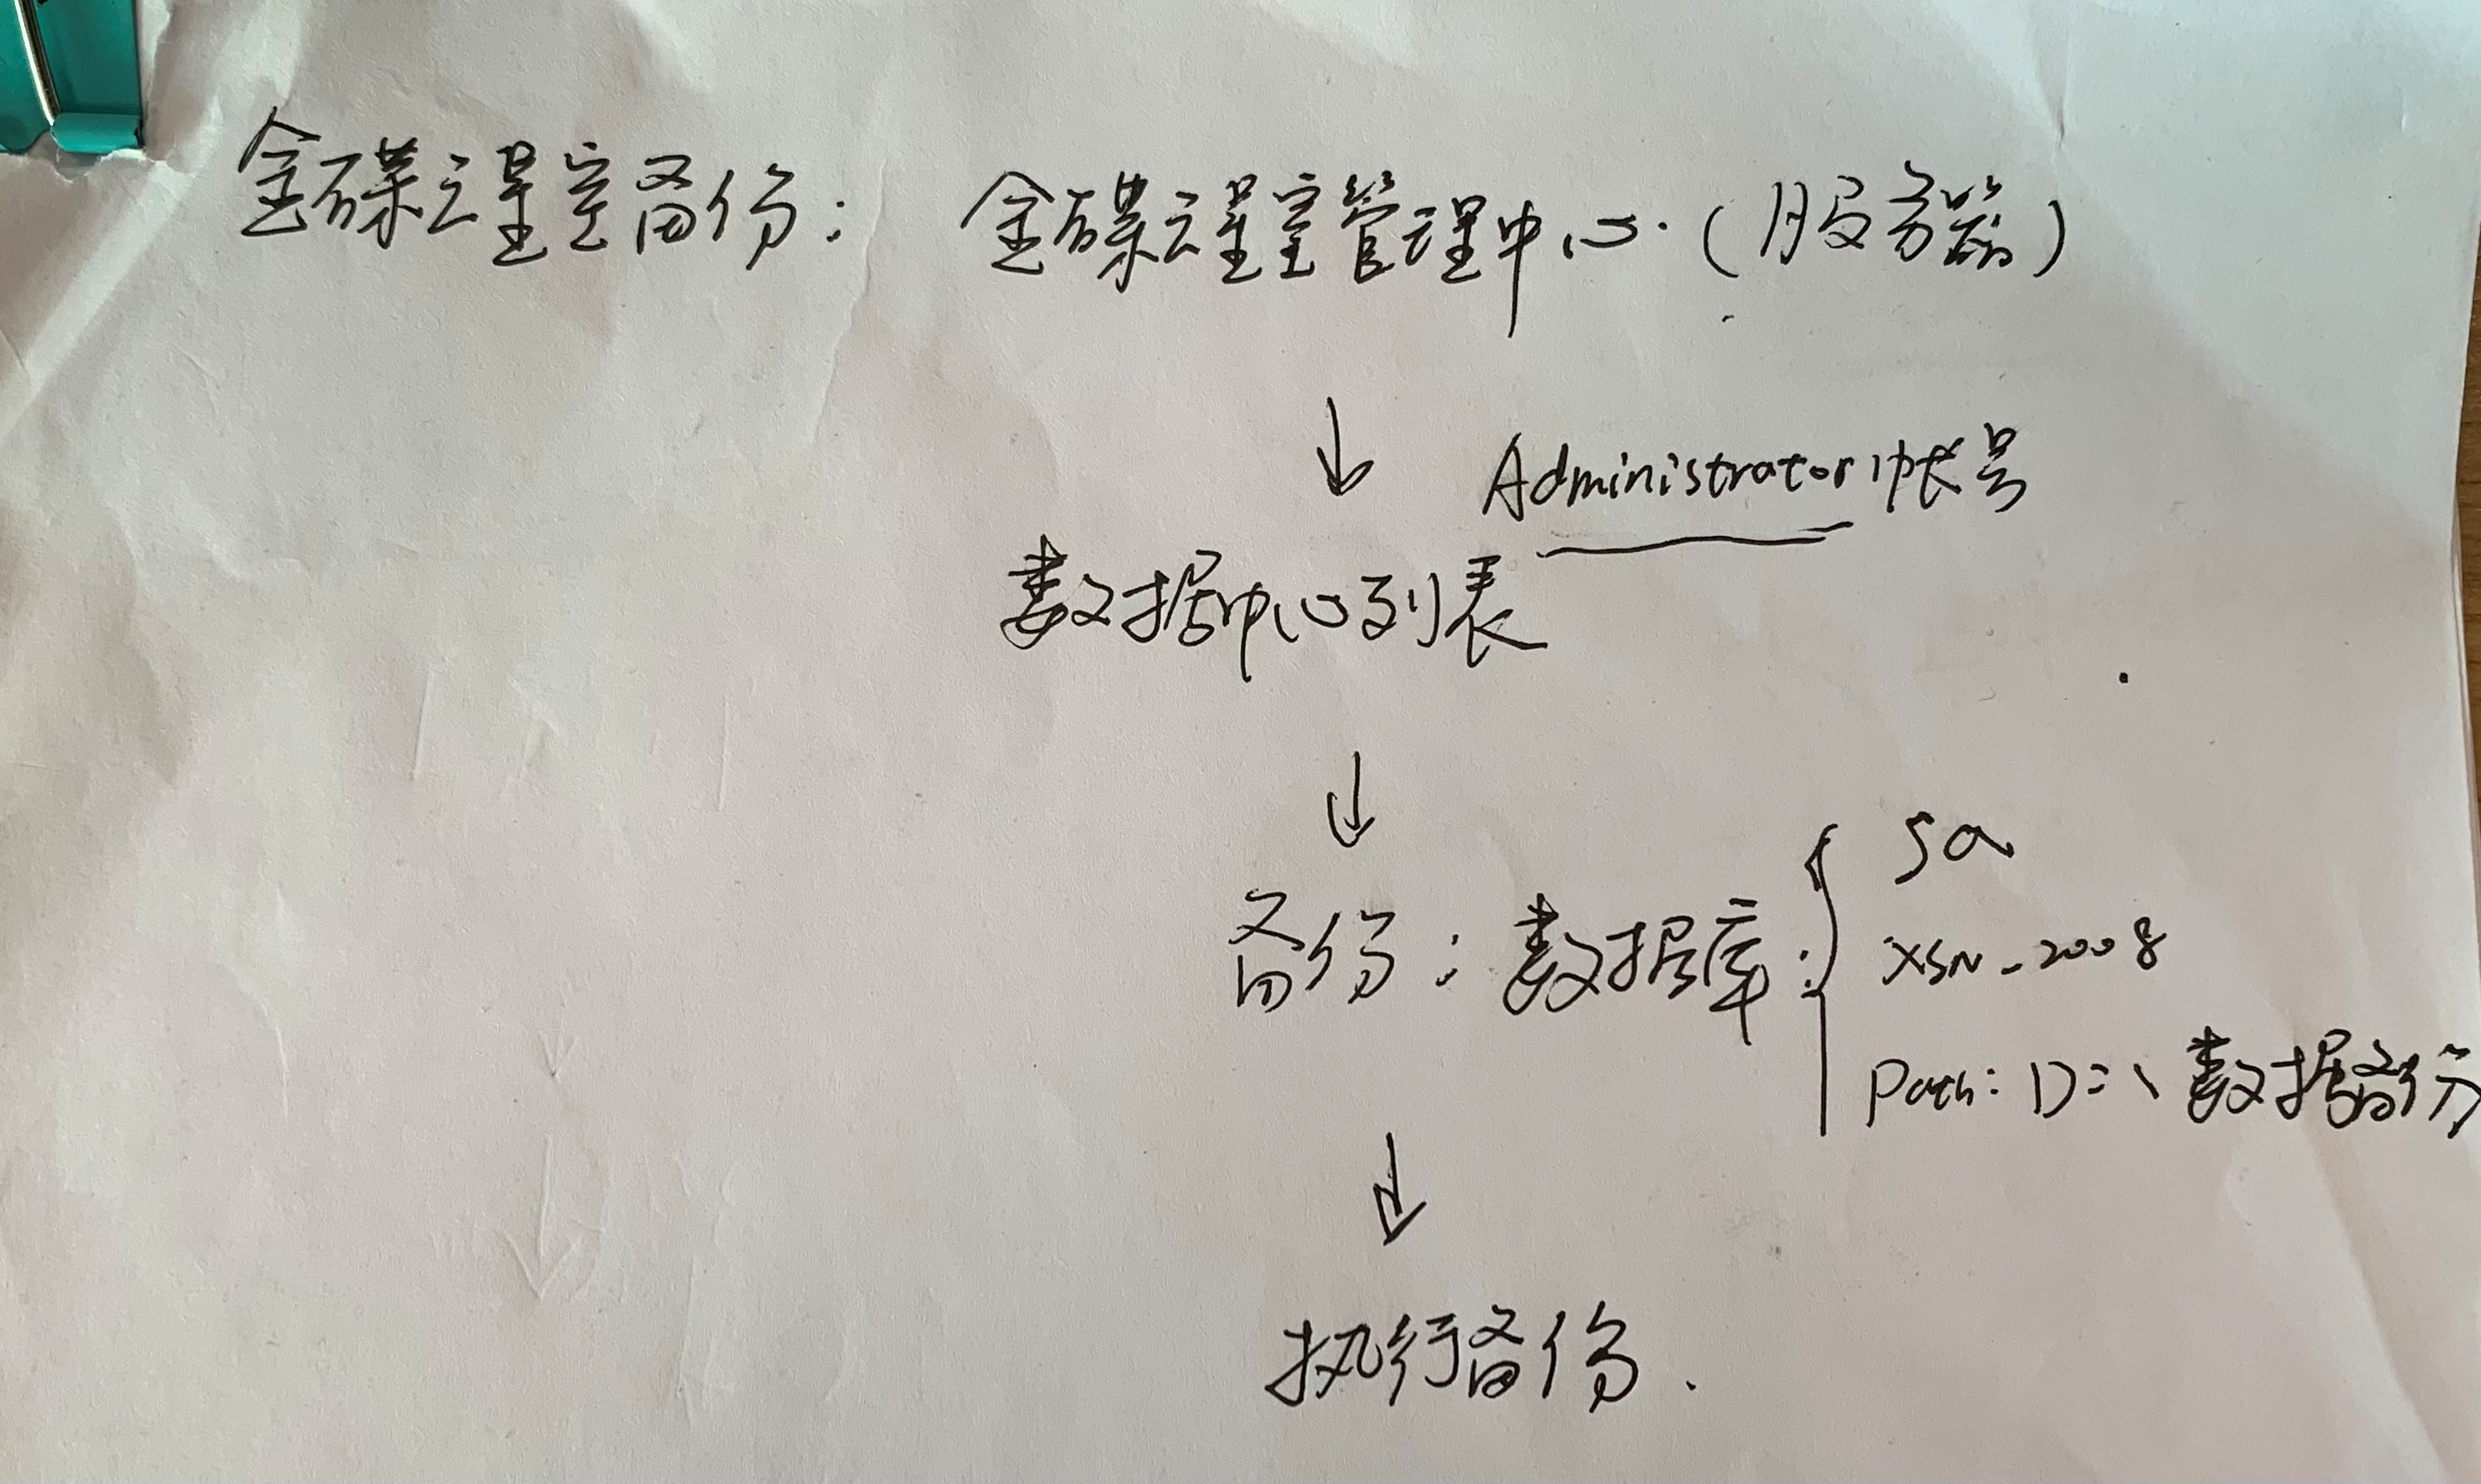 金碟云星空备份: 金碟云星空管理中心.(服务器)
↓ Administrator帐号
数据中心列表
↓
备份:数据库:{ sa
XSN_2008
Path: D:\数据备份
↓
执行备份.